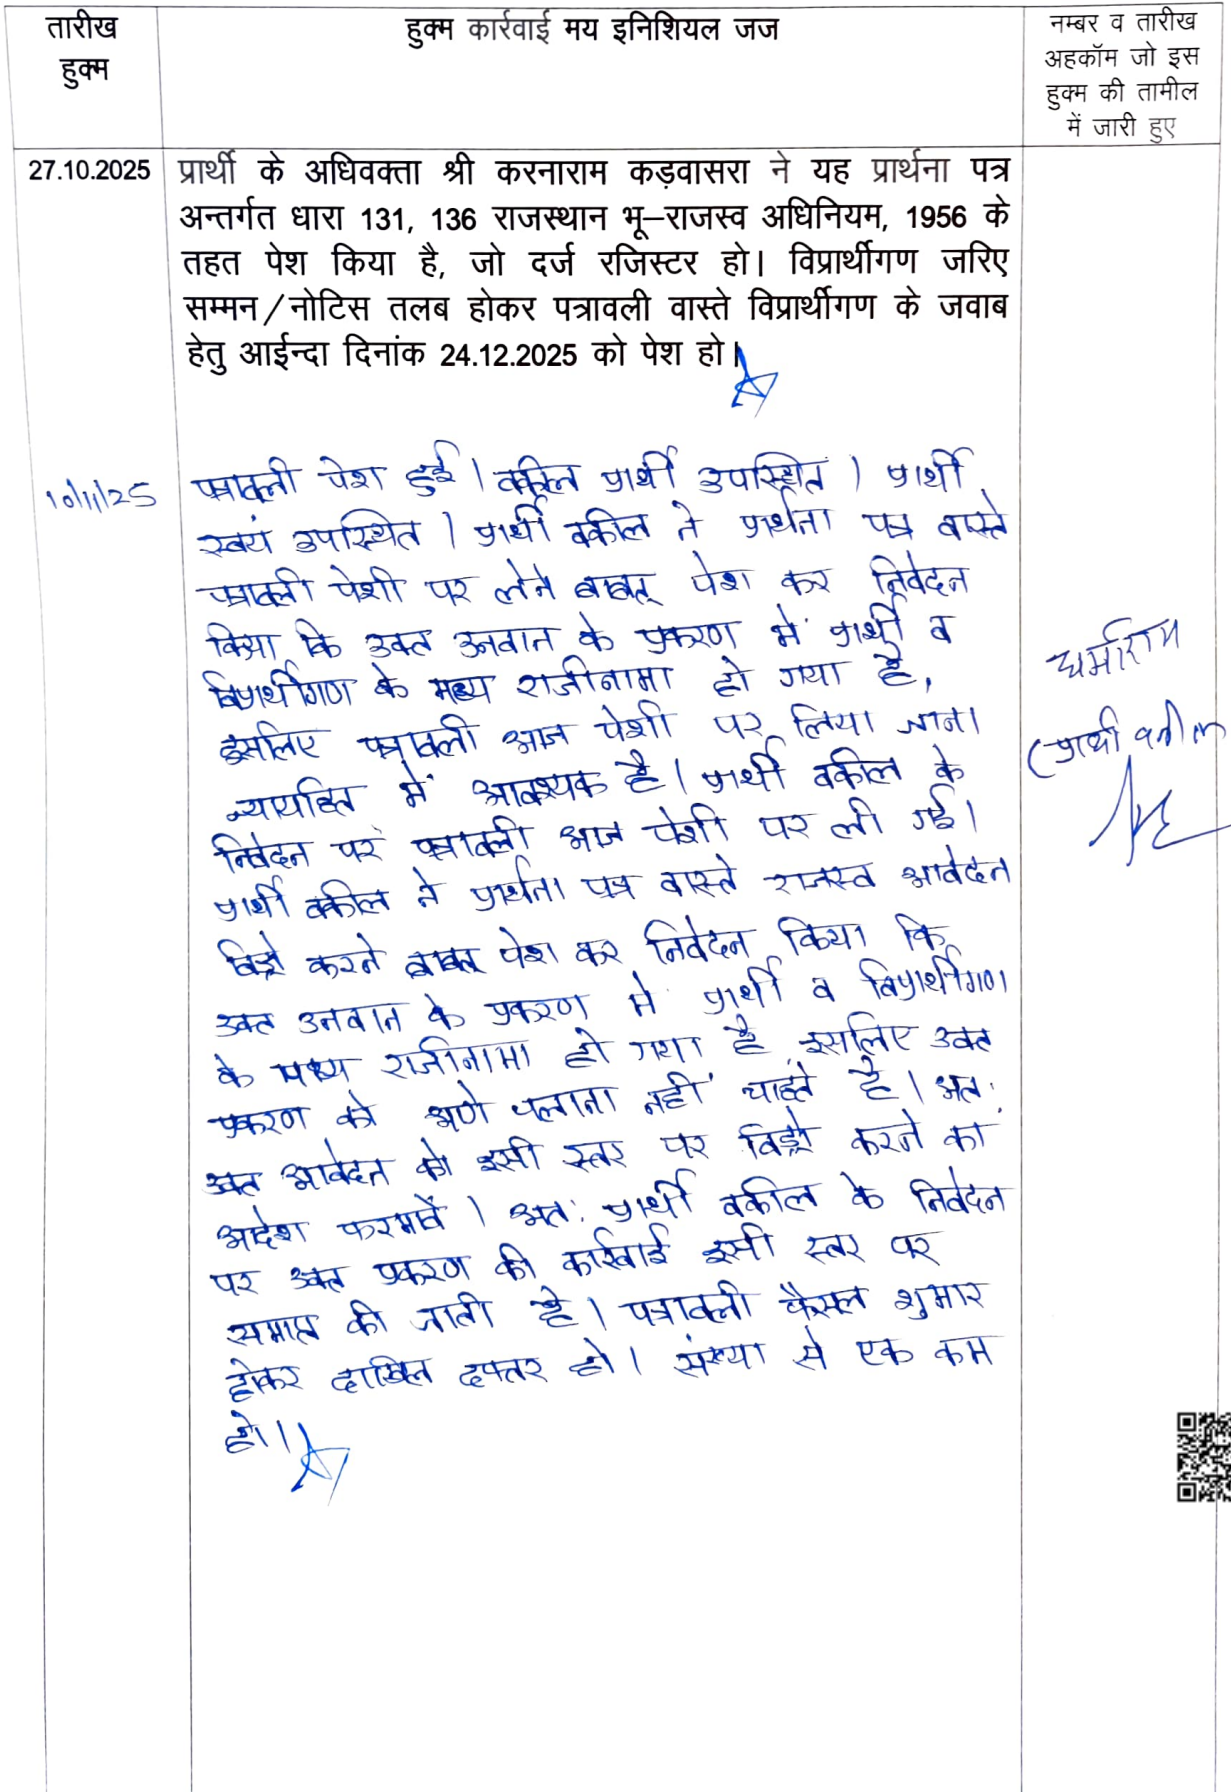 तारीख
हुक्म
हुक्म कार्रवाई मय इनिशियल जज
नम्बर व तारीख
अहकॉम जो इस
हुक्म की तामील
में जारी हुए
27.10.2025
प्रार्थी के अधिवक्ता श्री करनाराम कड़वासरा ने यह प्रार्थना पत्र
अन्तर्गत धारा 131, 136 राजस्थान भू–राजस्व अधिनियम, 1956 के
तहत पेश किया है, जो दर्ज रजिस्टर हो। विप्रार्थीगण जरिए
सम्मन/नोटिस तलब होकर पत्रावली वास्ते विप्रार्थीगण के जवाब
हेतु आईन्दा दिनांक 24.12.2025 को पेश हो।
10/11/25
पत्रावली पेश हुई। वकील प्रार्थी उपस्थित। प्रार्थी
स्वयं उपस्थित। प्रार्थी वकील ने प्रार्थना पत्र वास्ते
पत्रावली पेशी पर लेने बाबत् पेश कर निवेदन
किया कि उक्त उनवान के प्रकरण में प्रार्थी व
विप्रार्थीगण के मध्य राजीनामा हो गया है,
इसलिए पत्रावली आज पेशी पर लिया जाना
न्यायहित में आवश्यक है। प्रार्थी वकील के
निवेदन पर पत्रावली आज पेशी पर ली गई।
प्रार्थी वकील ने प्रार्थना पत्र वास्ते राजस्व आवेदन
विड्रो करने बाबत् पेश कर निवेदन किया कि
उक्त उनवान के प्रकरण में प्रार्थी व विप्रार्थीगण
के मध्य राजीनामा हो गया है इसलिए उक्त
प्रकरण को आगे चलाना नहीं चाहते है। अतः
उक्त आवेदन को इसी स्तर पर विड्रो करने का
आदेश फरमावें। अतः प्रार्थी वकील के निवेदन
पर उक्त प्रकरण की कार्रवाई इसी स्तर पर
समाप्त की जाती है। पत्रावली फैसल शुमार
होकर दाखिल दफ्तर हो। संख्या से एक कम
हो।
धर्माराम
(प्रार्थी वकील